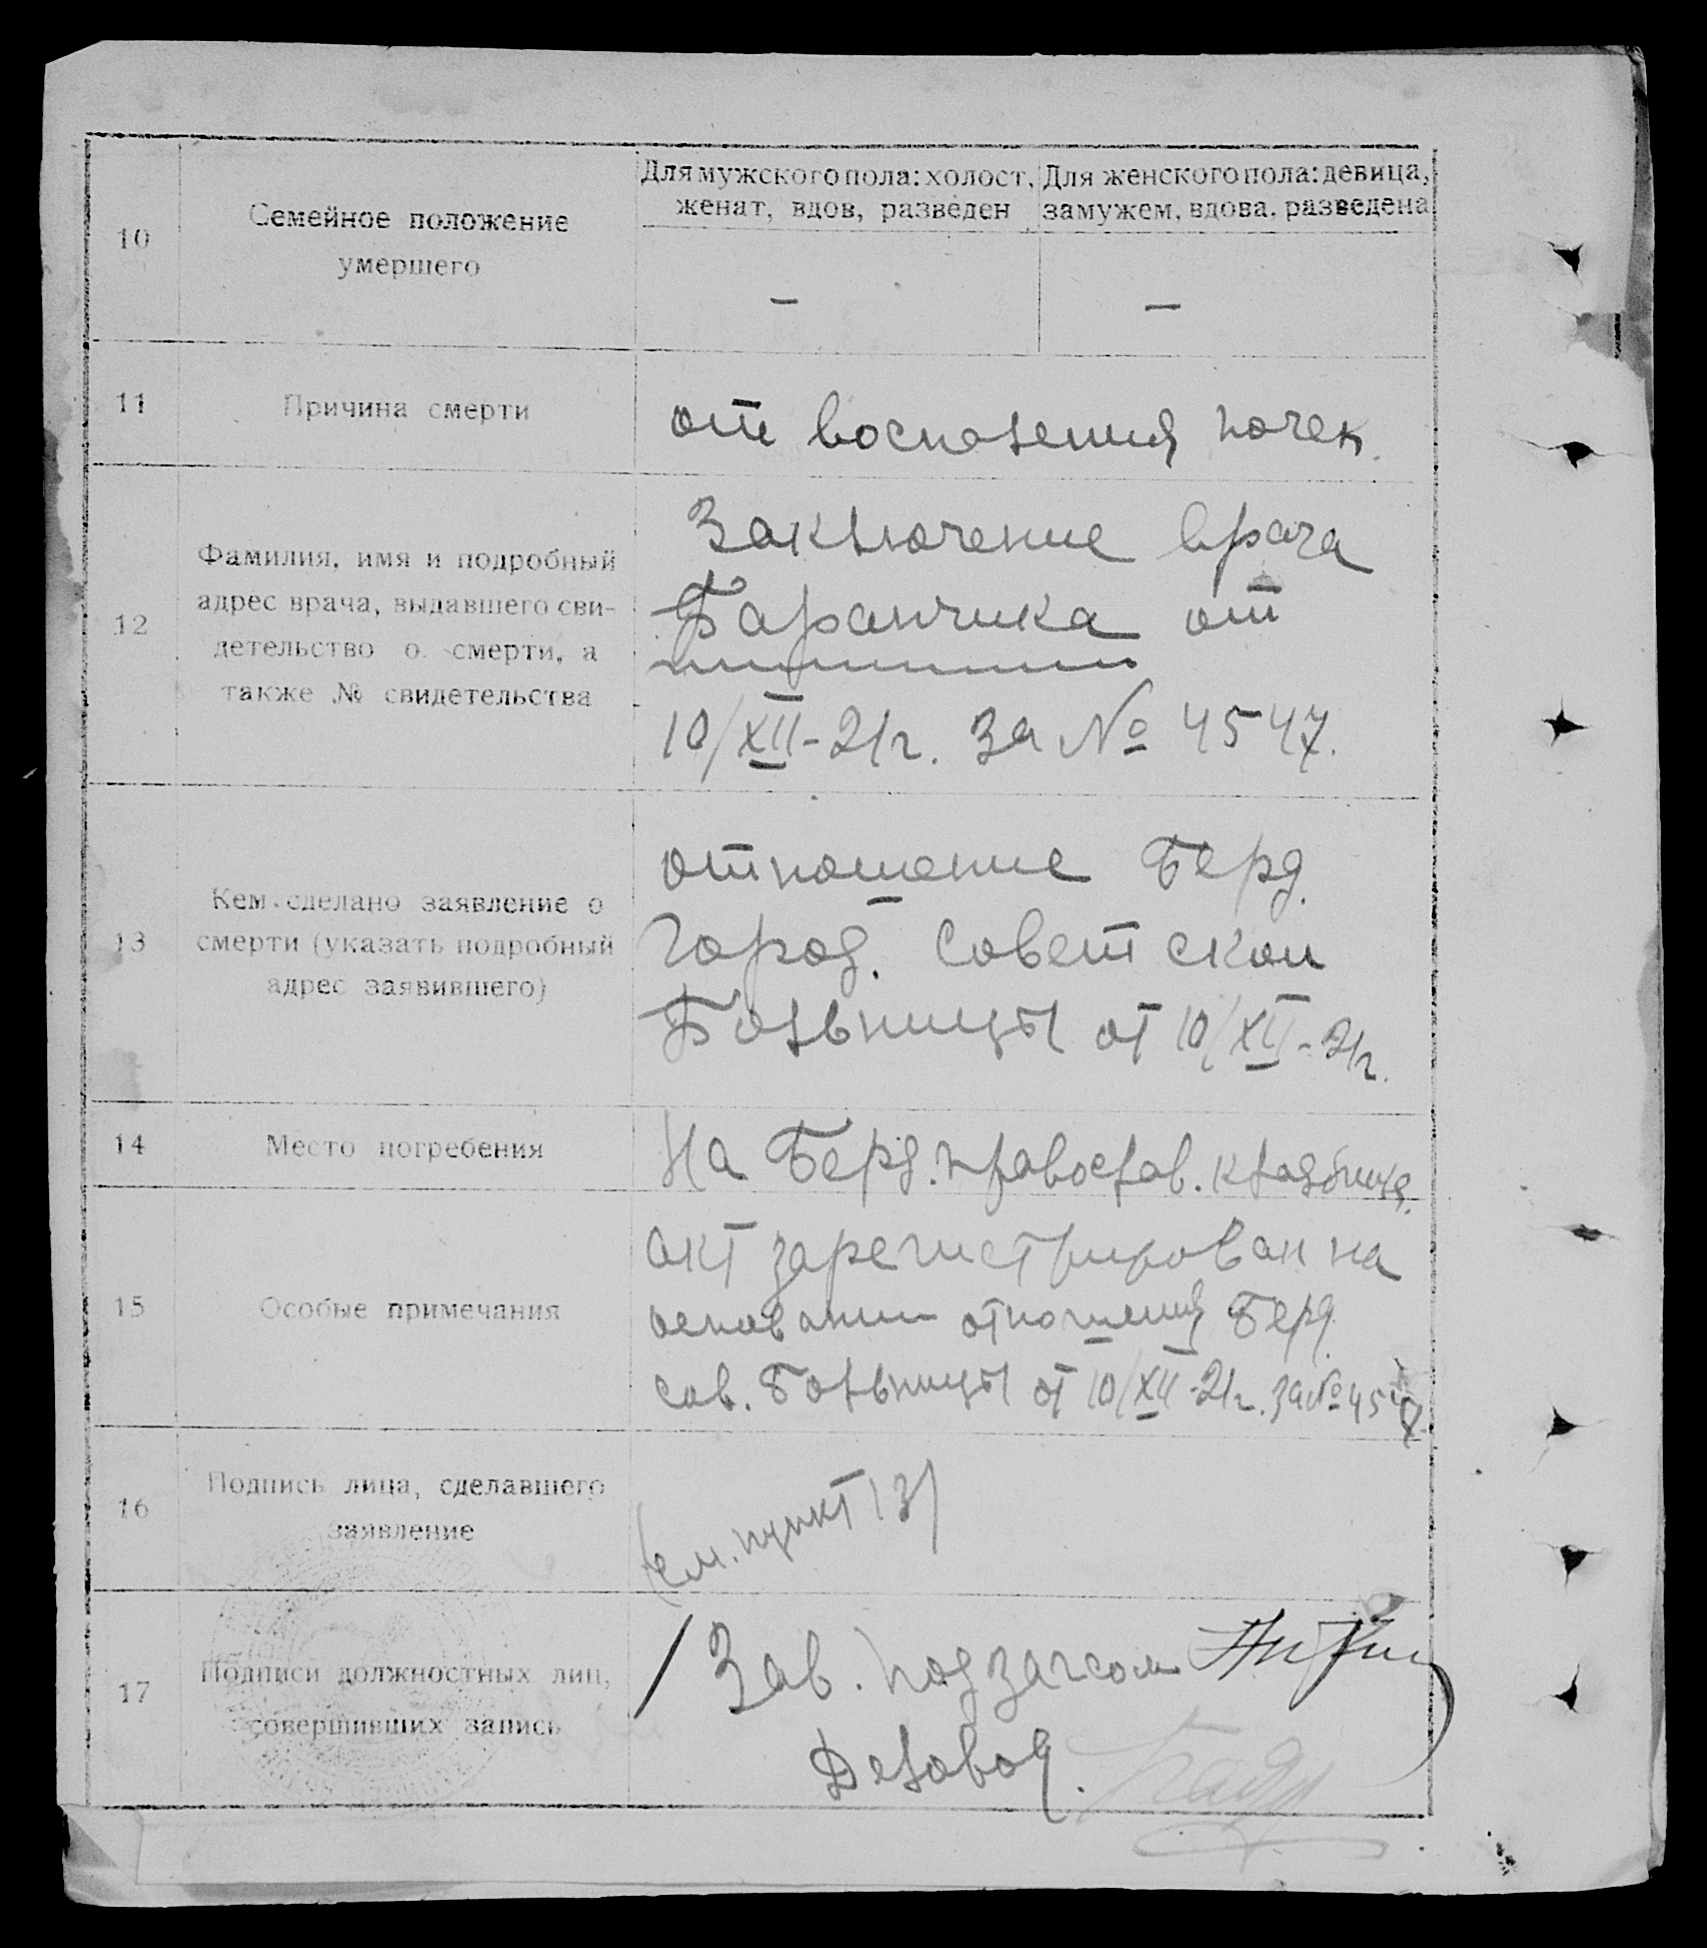 10
Семейное положение
умершего
Для мужского пола: холост,
женат, вдов, разведен
Для женского пола: девица,
замужем, вдова, разведена
–
–
11
Причина смерти
от воспаления почек.
12
Фамилия, имя и подробный
адрес врача, выдавшего сви-
детельство о смерти, а
также № свидетельства
Заключение врача
Баранчика от
10/XII-21г. за № 4547.
13
Кем сделано заявление о
смерти (указать подробный
адрес заявившего)
отношение Берд.
город. Советской
Больницы от 10/XII-21г.
14
Место погребения
На Берд. православ. кладбище.
15
Особые примечания
акт зарегистрирован на
основании отношения Берд.
сов. Больницы от 10/XII-21г. за № 4547
16
Подпись лица, сделавшего
заявление
(см. пункт 13)
17
Подписи должностных лиц,
совершивших запись
Зав. подзагсом
Деловод.